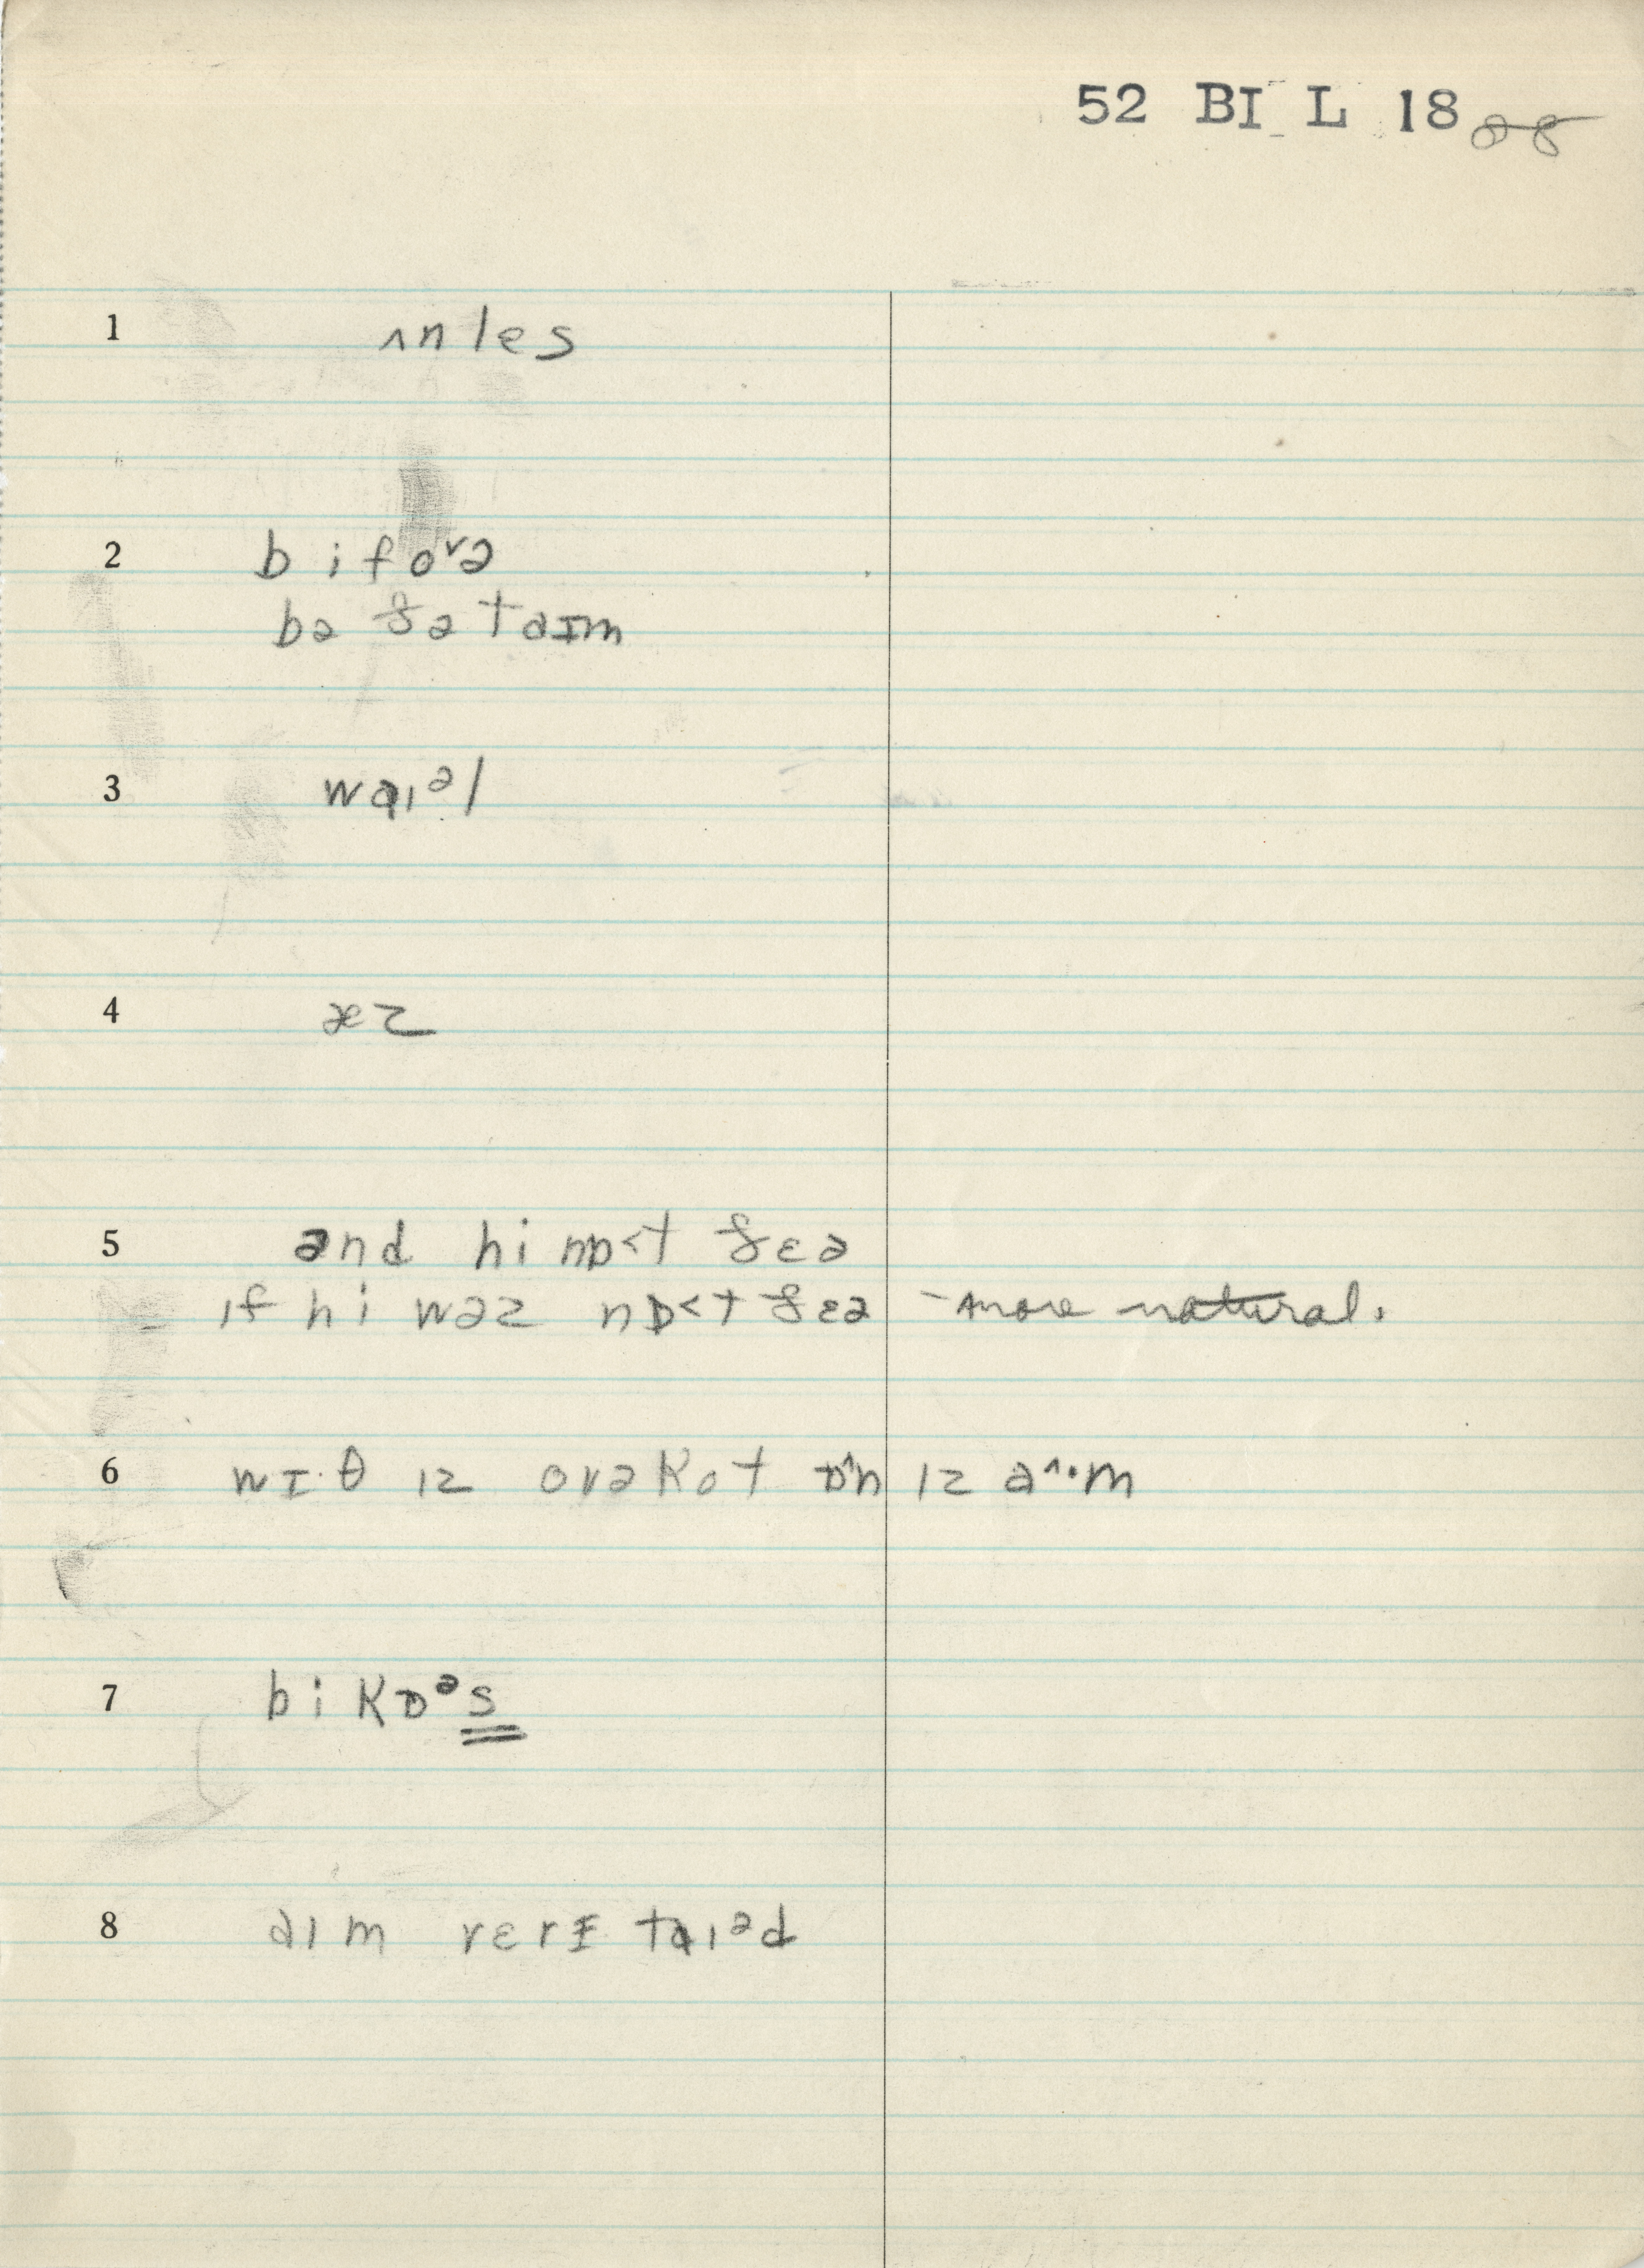 52 BI L 18 88
1 ʌnles
2 bifoʳə
bə ðə taɪm
3 waɪᵊl
4 æz
5 ənd hi nɒ<t ðɛə
ɪf hi wəz nɒ<t ðɛə – more natural.
6 wɪ·θ ɪz ovəkot ɒ^n ɪz a^·m
7 bi kɒᵊs
8 aɪm verɪ taɪᵊd